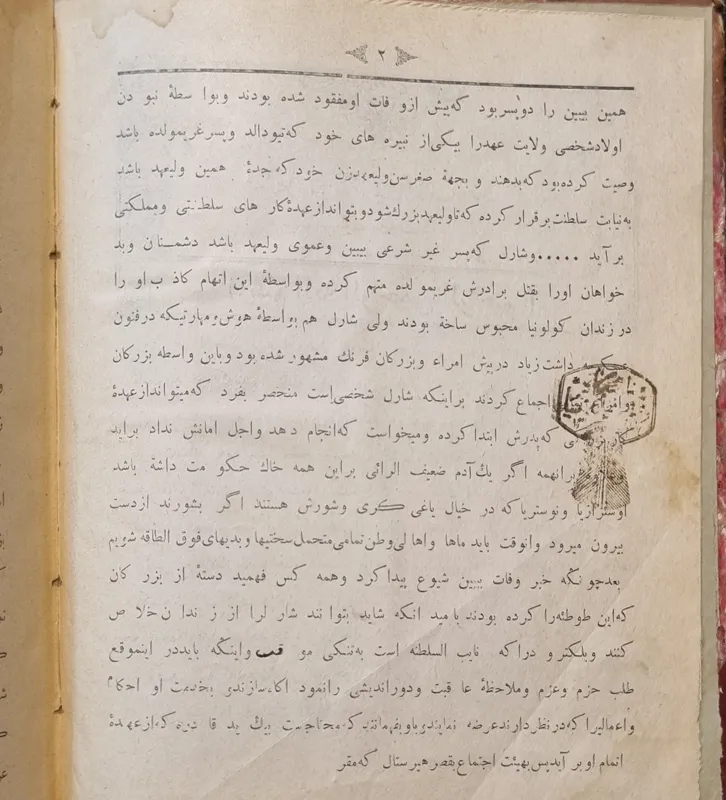 ۲
همین بیبین را دوپسربود که‌پیش ازو فات اومفقود شده بودند وبوا سطهٔ نبو دن
اولادشخصی ولایت عهدرا بیکی‌از نبیره های خود که‌تیودالد وپسرغریمولده باشد
وصیت کرده‌بود که‌بدهند و بجههٔ صغرسن‌ولیعهدزن خود که‌جدهٔ همین ولیعهد باشد
به‌نیابت سلطنت‌برقرار کرده که‌تاولیعهدبزرك‌شودوبتواندازعهدهٔ‌کار های سلطنتی ومملکتی
برآید ..... وشارل که‌پسر غیر شرعی بیبین وعموی ولیعهد باشد دشمنان وبد
خواهان اورا بقتل برادرش غریمو لده متهم کرده وبواسطهٔ این اتهام کاذ ب‌او را
درزندان کولونیا محبوس ساخة بودند ولی شارل هم بواسطهٔ هوش‌ومهارتیکه درفنون
داشت‌زیاد درپیش امراء وبزرکان فرنك مشهور شده‌بود وباین واسطه بزرکان
اجماع کردند براینکه شارل شخصی‌است منحصر بفرد که‌میتواندازعهدهٔ
که‌پدرش ابتداکرده ومیخواست که‌انجام دهد واجل امانش نداد براید
برانهمه اگر یك‌آدم ضعیف الرائی براین همه خاك حکو مت داشة باشد
اوسترازیا ونوستریاکه در خیال یاغی کری وشورش هستند اگر بشورند ازدست
بیرون میرود وانوقت باید ماها واها لی‌وطن‌تمامی‌متحمل‌سختیها‌وبدیهای‌فوق الطاقه شویم
بعدچونکه خبر وفات بیبین شیوع پیداکرد وهمه کس فهمید دستهٔ از بزر کان
که‌این طوطئه‌را کرده بودند با مید انکه شاید بتوا نند شار لرا از ز ندا ن خلا ص
کنند وبلکترو دراکه نایب السلطنه است به‌تنکی مو قعی واینکه بایددر اینموقع
طلب حزم وعزم وملاحظهٔ عا قبت ودوراندیشی رانمود اکاه‌سازندو بخدمت او احکام
واعمالیرا که‌درنظردارندعرضه نمایندوباوبفهمانندکه‌محتاجست بیك ید قا دره که‌ازعهدهٔ
اتمام اوبر آیدپس‌بهیئت اجتماع بقصرهیرستال که‌مقر